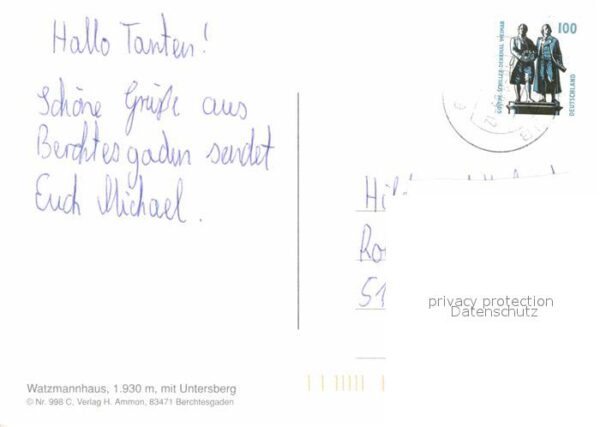 Hallo Tanten!
Schöne Grüße aus
Berchtesgaden sendet
Euch Michael.
100
GOETHE-SCHILLER-DENKMAL WEIMAR
DEUTSCHLAND
privacy protection
Datenschutz
Watzmannhaus, 1.930 m, mit Untersberg
© Nr. 998 C, Verlag H. Ammon, 83471 Berchtesgaden